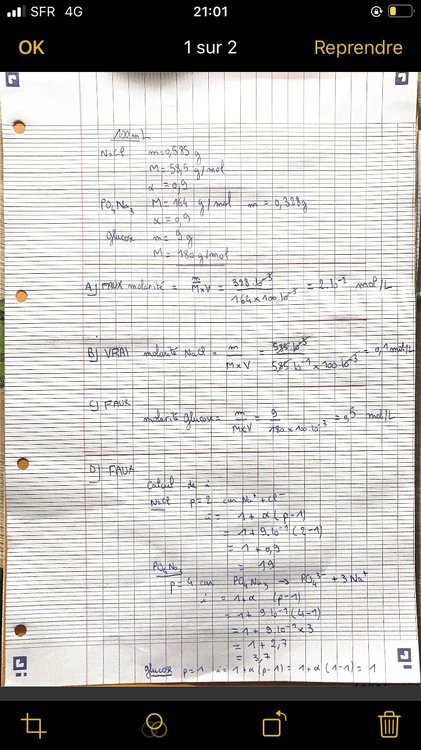 SFR 4G
21:01
OK
1 sur 2
Reprendre
100 mL
NaCl m = 0,585 g
M = 58,5 g/mol
α = 0,9
PO4Na3 M = 164 g/mol m = 0,328g
α = 0,9
Glucose m = 9 g
M = 180 g/mol
A) FAUX molarité = m / M×V = 328.10⁻³ / 164 × 100.10⁻³ = 2.10⁻² mol/L
B) VRAI molarité NaCl = m / M×V = 585.10⁻³ / 585.10⁻¹ × 100.10⁻³ = 0,1 mol/L
C) FAUX
molarité Glucose = m / M×V = 9 / 180 × 100.10⁻³ = 0,5 mol/L
D) FAUX
Calcul de i
NaCl p = 2 car Na⁺ + Cl⁻
i = 1 + α (p-1)
= 1 + 9.10⁻¹ (2-1)
= 1 + 0,9
= 1,9
PO4Na3
p = 4 car PO4Na3 → PO4³⁻ + 3Na⁺
i = 1+α (p-1)
= 1+ 9.10⁻¹ (4-1)
= 1 + 9.10⁻¹ × 3
= 1 + 2,7
= 3,7
glucose p = 1 i = 1+α (p-1) = 1+α (1-1) = 1